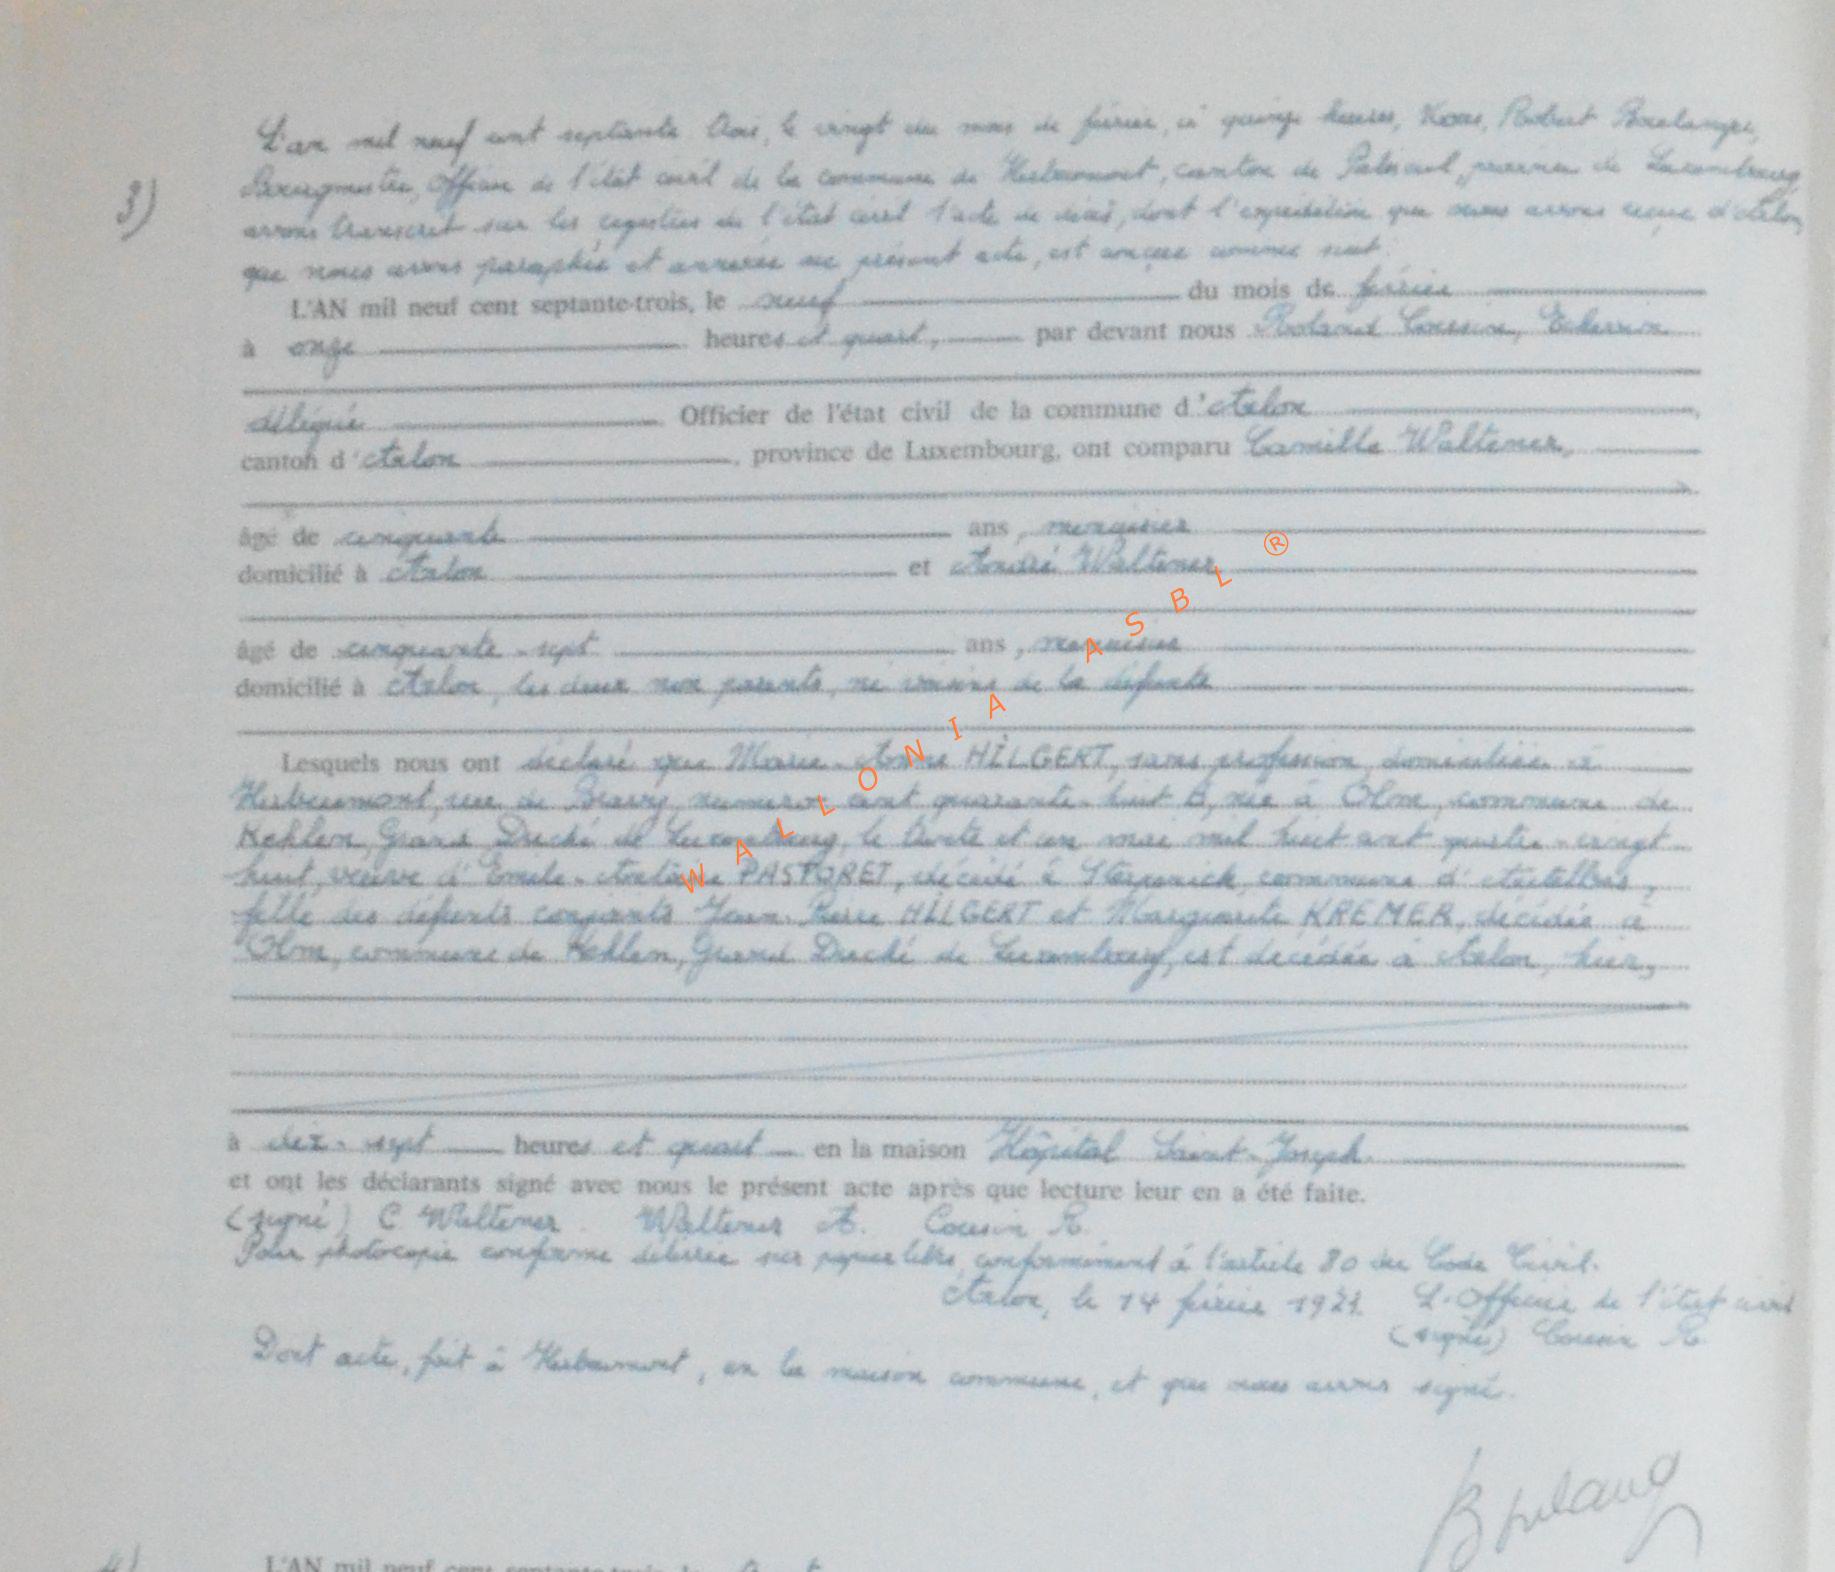 L'an mil neuf cent septante trois, le vingt du mois de février, à quinze heures, Nous, Robert Boulanger,
3) Bourgmestre, Officier de l'état civil de la commune de Herbeumont, canton de Paliseul, province de Luxembourg,
avons transcrit sur les registres de l'état civil l'acte de décès, dont l'expédition que nous avons reçue d'Arlon,
que nous avons paraphée et annexée au présent acte, est conçue comme suit:
L'AN mil neuf cent septante-trois, le neuf du mois de février
à onze heures et quart, par devant nous Roland Cousin, Echevin
délégué Officier de l'état civil de la commune d'Arlon,
canton d'Arlon, province de Luxembourg, ont comparu Camille Waltener,
âgé de cinquante ans, menuisier
domicilié à Arlon et André Waltener,
âgé de cinquante-sept ans, menuisier
domicilié à Arlon, les deux non parents, ni voisins de la défunte
Lesquels nous ont déclaré que Marie-Anne HILGERT, sans profession, domiciliée à
Herbeumont, rue de numéro cent quarante-huit B, née à Olm, commune de
Kehlen, Grand Duché de Luxembourg, le trente et un mai mil huit cent quatre-vingt-
huit, veuve d'Emile-Antoine PASTORET, décédé à Sterpenick, commune d'Autelbas,
fille des défunts conjoints Jean-Pierre HILGERT et Marguerite KREMER, décédés à
Olm, commune de Kehlen, Grand Duché de Luxembourg, est décédée à Arlon, hier,
à dix-sept heures et quart en la maison Hôpital Saint-Joseph
et ont les déclarants signé avec nous le présent acte après que lecture leur en a été faite.
(signé) C Waltener. Waltener A. Cousin R.
Pour photocopie conforme délivrée sur papier libre, conformément à l'article 80 du Code Civil.
Arlon, le 14 février L'Officier de l'état civil
(signé) Cousin R.
Dont acte, fait à Herbeumont, en la maison commune, et que nous avons signé.
Boulang
4) L'AN mil neuf cent septante-trois, le
WALLONIA ASBL ®